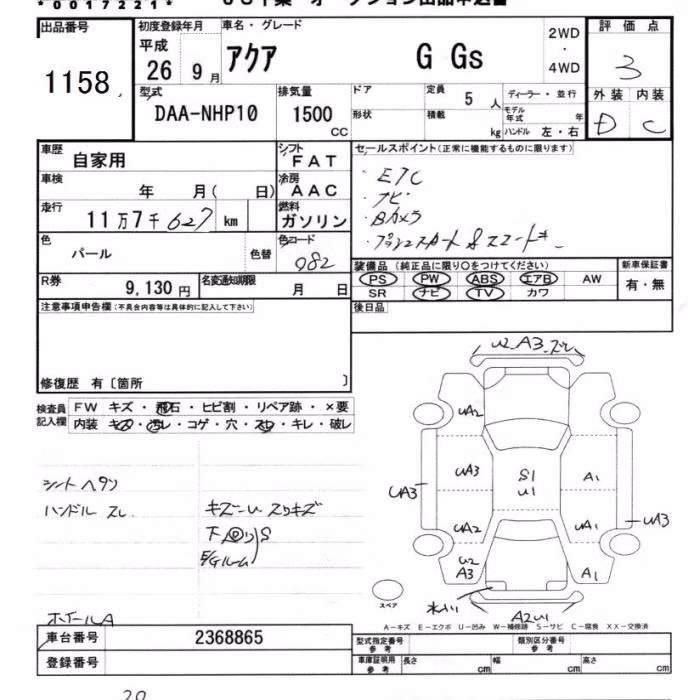 *0017221*
出品番号 初度登録年月 車名・グレード 2WD・4WD 評価点
1158 平成 26 9月 アクア G Gs 3
型式 DAA-NHP10 排気量 1500 CC
ドア 定員 5人 ディーラー・並行
形状 積載 kg モデル年式 年 ハンドル 左・右
外装 内装
D C
車歴 自家用 シフト FAT
車検 年 月(日) 冷房 AAC
走行 11万7千627 km 燃料 ガソリン
色 パール 色替 色コード 082
R券 9,130円 名変通知期限 月 日
セールスポイント(正常に機能するものに限ります)
・ETC
・ナビ
・Bカメラ
装備品(純正品に限り○をつけてください) 新車保証書
PS PW ABS エアB AW 有・無
SR ナビ TV カワ
後日品
注意事項申告欄(不具合内容等は具体的に記入して下さい)
修復歴 有〔箇所 〕
検査員記入欄 FW キズ・飛石・ヒビ割・リペア跡・×要
内装 キズ・汚レ・コゲ・穴・スレ・キレ・破レ
シートヘタリ
ハンドルスレ
キズーU スリキズ
下回り S
E/Gルーム
ホイールA
U2 A3
UA2
UA3 UA3 S1 U1 A1
UA2 UA1 UA3
U2 A3 A1
A2U1
スペア
A-キズ E-エクボ U-凹み W-補修跡 S-サビ C-腐食 XX-交換済
車台番号 2368865
登録番号
型式指定番号 参考 類別区分番号 参考
車庫証明用 参考 長さ cm 幅 cm 高さ cm
20